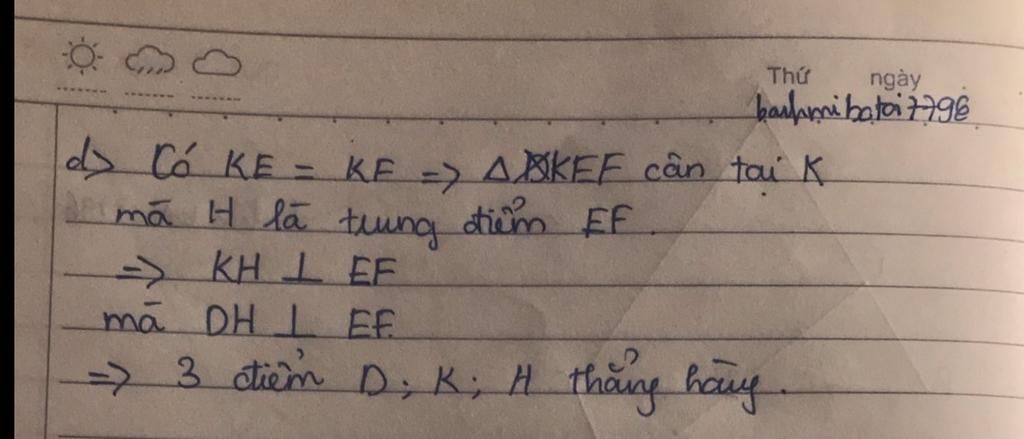 Thứ ngày
banhmibatoi7798
d> Có KE = KF => Δ KEF cân tại K
mà H là trung điểm EF.
=> KH ⊥ EF
mà DH ⊥ EF
=> 3 điểm D; K; H thẳng hàng.